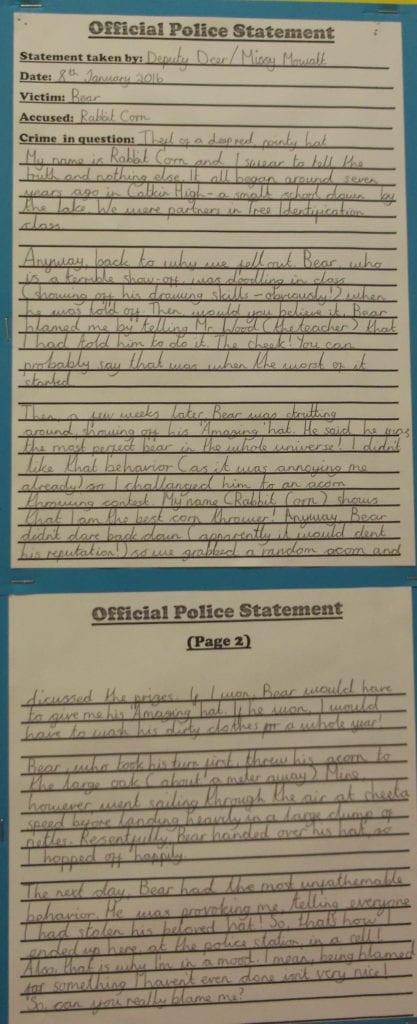 Official Police Statement
Statement taken by: Deputy Deer/Missy Mowatt
Date: 8th January 2016
Victim: Bear
Accused: Rabbit Corn
Crime in question: Theft of a deep red, pointy hat
My name is Rabbit Corn and I swear to tell the
truth and nothing else. It all began around seven
years ago in Catkin High - a small school down by
the lake. We were partners in Tree Identification
class.
Anyway, back to why we fell out. Bear, who
is a terrible show-off, was doodling in class
(showing off his drawing skills - obviously!) when
he was told off. Then, would you believe it, Bear
blamed me by telling Mr Wood (the teacher) that
I had told him to do it. The cheek! You can
probably say that was when the worst of it
started.
Then, a few weeks later, Bear was strutting
around, showing off his 'Amazing' hat. He said he was
the most perfect bear in the whole universe! I didn't
like that behavior (as it was annoying me
already) so I challanged him to an acorn
throwing contest. My name (Rabbit Corn) shows
that I am the best corn thrower! Anyway, Bear
didn't dare back down (apparently it would dent
his reputation!) so we grabbed a random acorn and
Official Police Statement
(Page 2)
dicussed the prizes. If I won, Bear would have
to give me his 'Amazing' hat. If he won, I would
have to wash his dirty clothes for a whole year!
Bear, who took his turn first, threw his acorn to
the large oak (about a meter away). Mine,
however, went sailing through the air at cheeta
speed before landing heavily in a large clump of
nettles. Resentfully, Bear handed over his hat, so
I hopped off happily.
The next day, Bear had the most unfathemable
behavior. He was provoking me, telling everyone
I had stolen his beloved hat! So, that's how I
ended up here, at the police station, in a cell!
Also, that is why I'm in a mood. I mean, being blamed
for something I haven't even done isn't very nice!
So, can you really blame me?